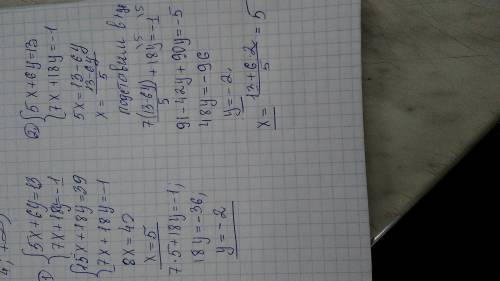 1) {5x+6y=13
{7x+18y=-1
{15x+18y=39
{7x+18y=-1
8x=40
x=5
7·5+18y=-1;
18y=-36,
y=-2
2) {5x+6y=13
{7x+18y=-1
5x=13-6y
x=\frac{13-6y}{5}
подставим в
\frac{7(13-6y)}{5}+18y=-1
91-42y+90y=-5
48y=-96
y=-2,
x=\frac{13+6·2}{5}=5